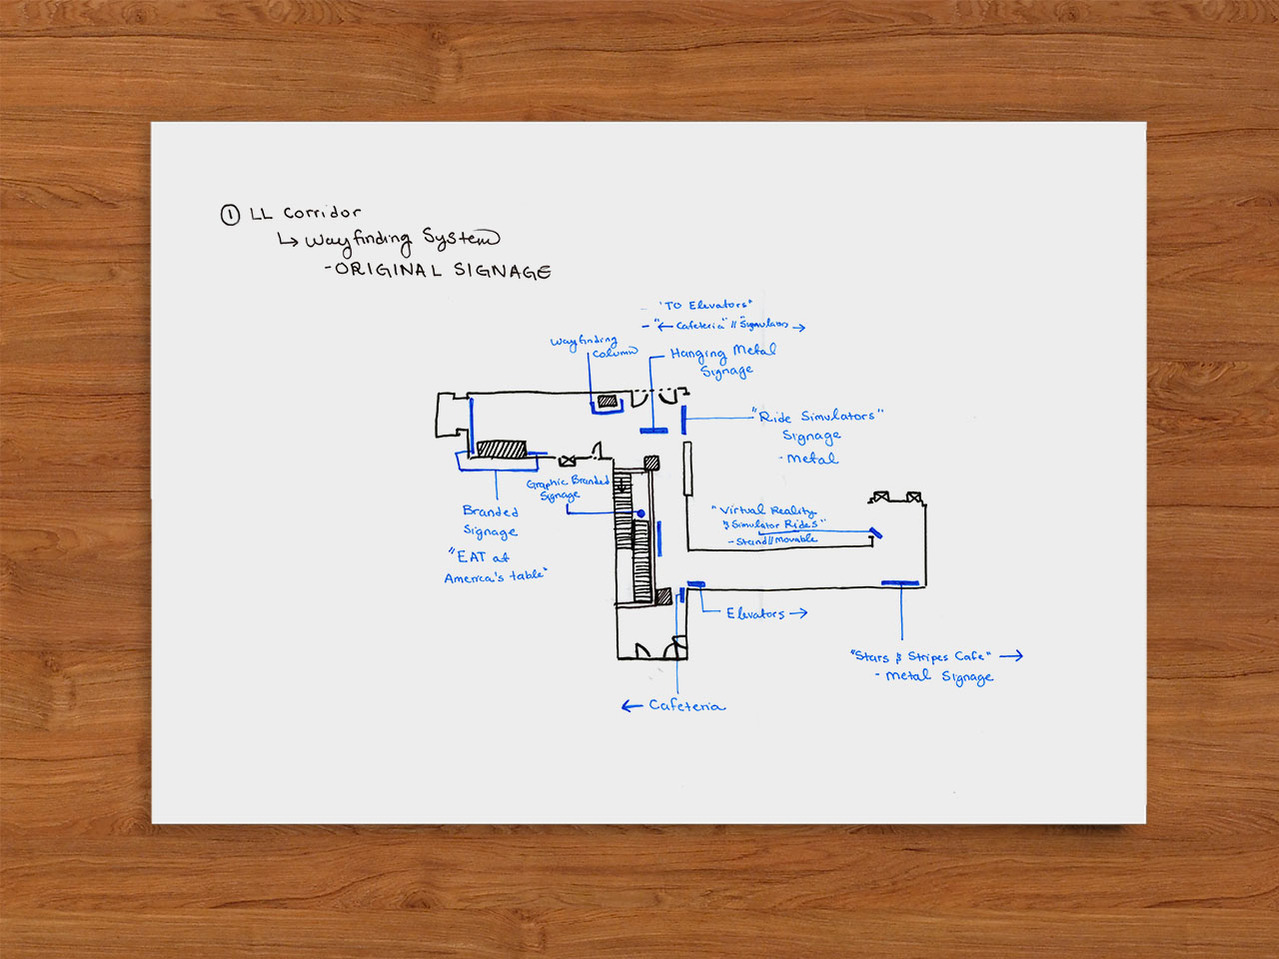 ① LL Corridor
↳ Wayfinding System
- ORIGINAL SIGNAGE
- "TO Elevators"
- "← Cafeteria" // "Simulators →
Wayfinding
Column
Hanging Metal
Signage
"Ride Simulators"
Signage
- Metal
Graphic Branded
Signage
Branded
Signage
"EAT at
America's table"
"Virtual Reality
& Simulator Rides"
- Stand // movable
Elevators →
"Stars & Stripes Cafe" →
- Metal Signage
← Cafeteria